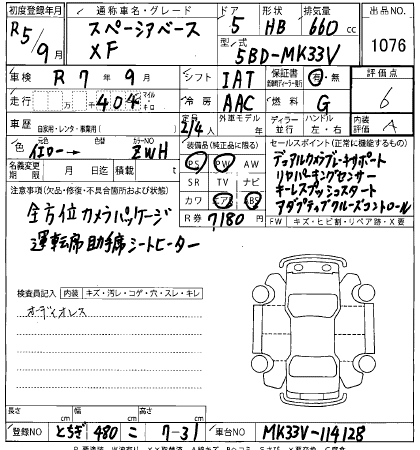 初度登録年月
R5/9月
通称車名・グレード
スペーシアベース
XF
ドア
5
形状
HB
排気量
660 cc
型式
5BD-MK33V
出品NO
1076
車検
R 7年 9月
シフト
IAT
保証書
有・無
評価点
6
走行
404
マイル
キロ
冷房
AAC
燃料
G
車歴
自家用・レンタ・事業用( )
定員
2/4人
外車モデル
年
ディーラー
並行
ハンドル
左・右
内装評価
A
色
元色
イエロー→
カラーNO
ZWH
装備品(純正品に限る)
PS PW AW
SR TV ナビ
カワ エアB ABS
R券 7180円
セールスポイント(正常に機能するもの)
デュアルカメラブレーキサポート
リヤパーキングセンサー
キーレスプッシュスタート
アダプティブクルーズコントロール
名義変更期限
月 日
積載
t
FW キズ・ヒビ割・リペア跡・X要
注意事項(欠品・修復・不具合箇所および状態)
全方位カメラパッケージ
運転席助手席シートヒーター
検査員記入
内装 キズ・汚レ・コゲ・穴・スレ・キレ
オーディオレス
長さ cm
幅 cm
高さ cm
登録NO
とちぎ 480 こ 7-31
車台NO
MK33V-114128